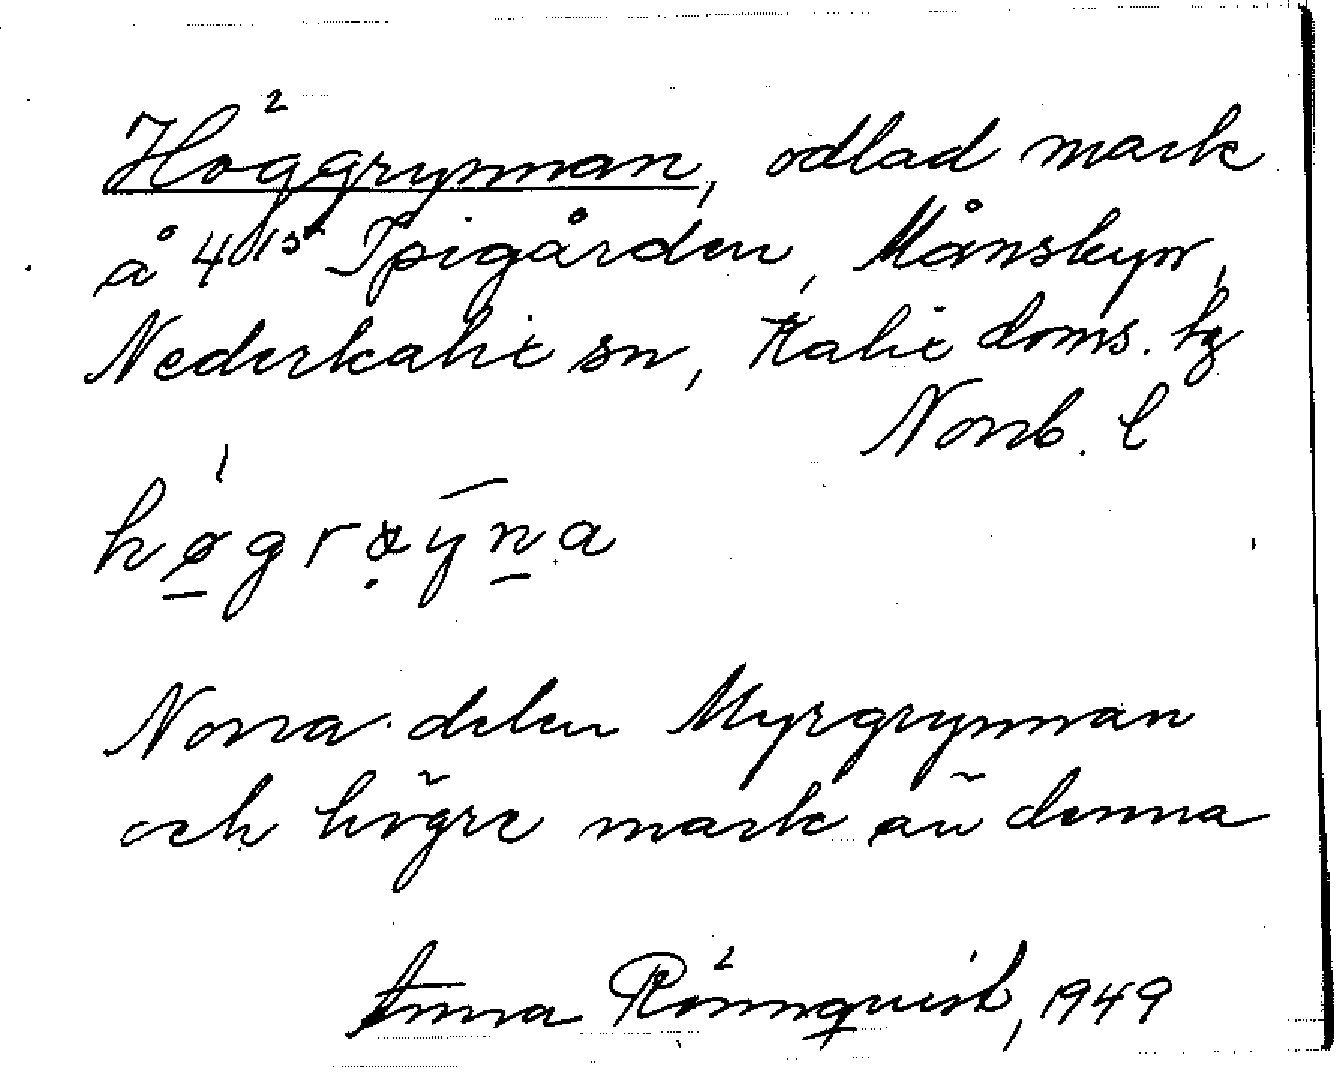 Höggrynnan, odlad mark
å Ipigården, Månskyn,
Nederkalix sn, Kalix doms. tg
Norrb. l
Norra delen Myrgrynnan
och högre mark än denna
Anna Rönnqvist, 1949